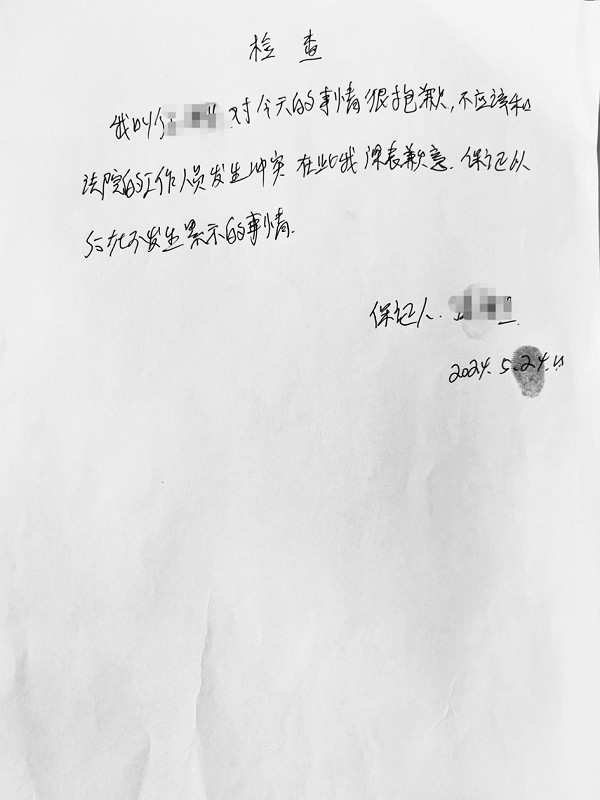 检查
我叫 对今天的事情很抱歉,不应该和
法院的工作人员发生冲突 在此我深表歉意.保证以
后在不发生累示的事情.
保证人.
2024.5.24.